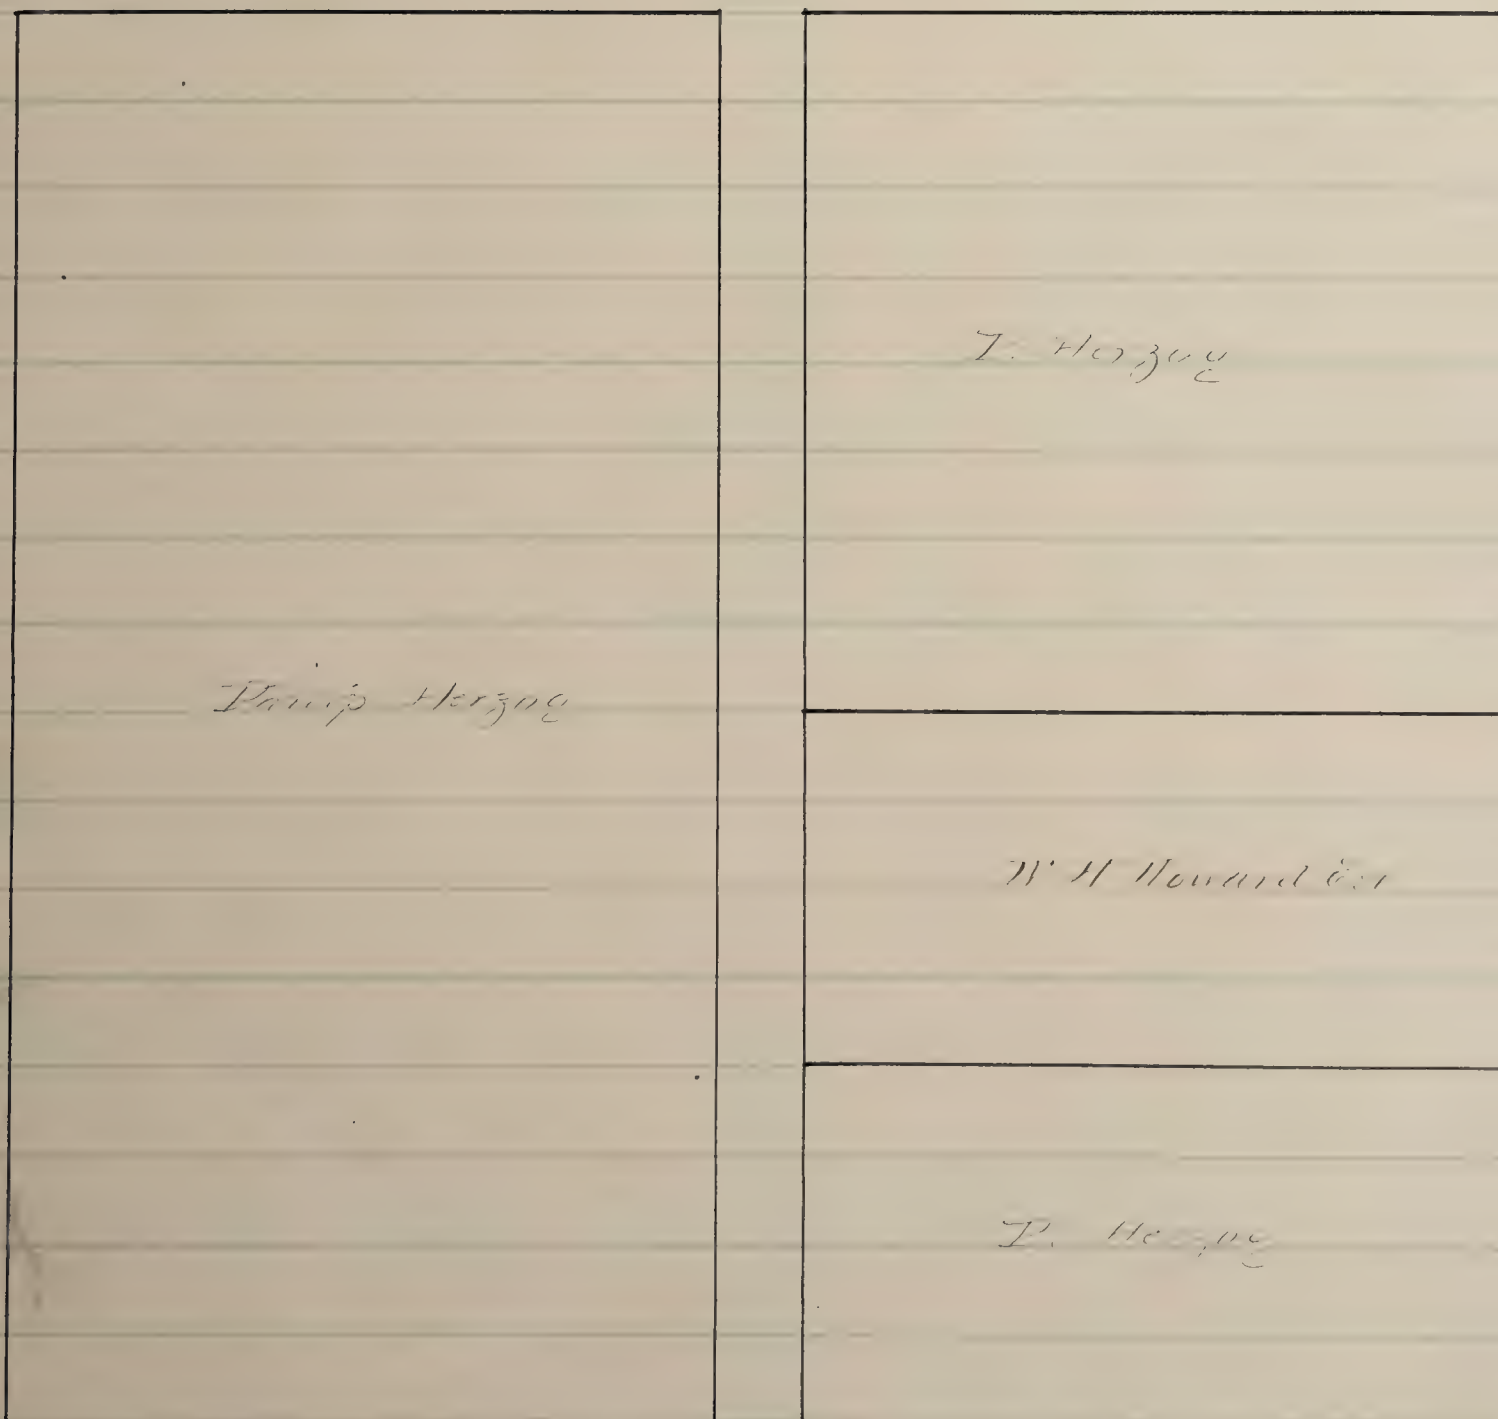 Philip Herzog
P. Herzog
W H Howard
P. Herzog